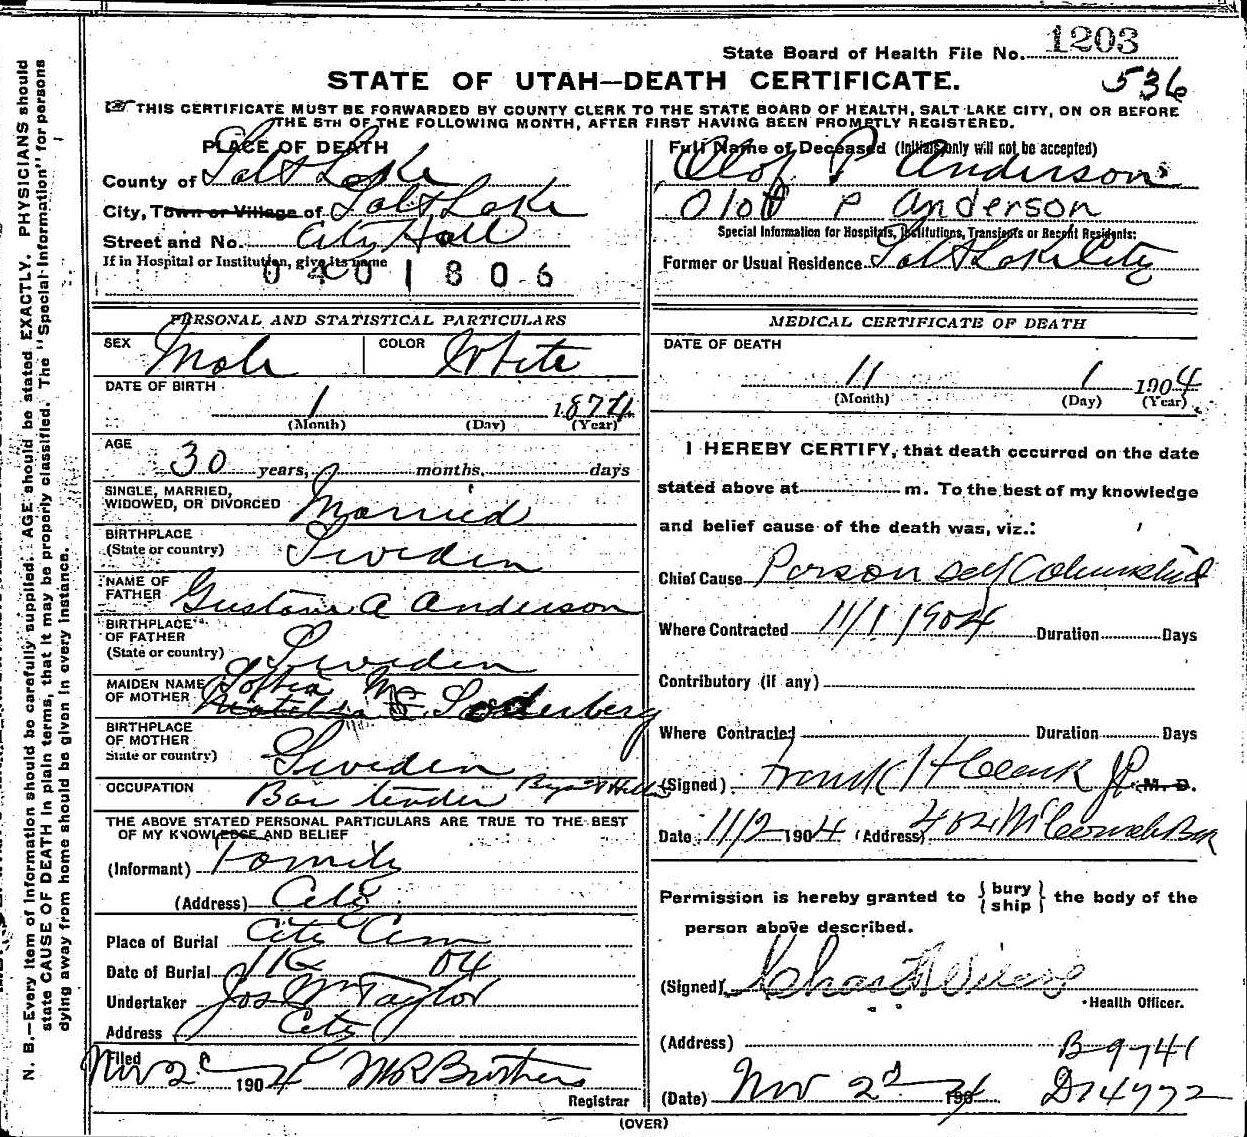 State Board of Health File No. 1203
STATE OF UTAH—DEATH CERTIFICATE.
536
THIS CERTIFICATE MUST BE FORWARDED BY COUNTY CLERK TO THE STATE BOARD OF HEALTH, SALT LAKE CITY, ON OR BEFORE
THE 5TH OF THE FOLLOWING MONTH, AFTER FIRST HAVING BEEN PROMPTLY REGISTERED.
PLACE OF DEATH
County of Salt Lake
City, Town or Village of Salt Lake
Street and No. City Hall
If in Hospital or Institution, give its name
0401806
Full Name of Deceased (Initials only will not be accepted)
Olof P Anderson
Olof P Anderson
Special Information for Hospitals, Institutions, Transients or Recent Residents:
Former or Usual Residence Salt Lake City
PERSONAL AND STATISTICAL PARTICULARS
SEX Male COLOR White
DATE OF BIRTH
1 1874
(Month) (Day) (Year)
AGE
30 years, months, days
SINGLE, MARRIED,
WIDOWED, OR DIVORCED Married
BIRTHPLACE
(State or country) Sweden
NAME OF
FATHER Gustave A Anderson
BIRTHPLACE
OF FATHER
(State or country) Sweden
MAIDEN NAME Sofbia M
OF MOTHER S. Soderberg
BIRTHPLACE
OF MOTHER
State or country) Sweden
OCCUPATION Bar tender
THE ABOVE STATED PERSONAL PARTICULARS ARE TRUE TO THE BEST
OF MY KNOWLEDGE AND BELIEF
(Informant) Family
(Address) City
Place of Burial City Cem
Date of Burial 11 04
Undertaker Jos Wm Taylor
Address City
Filed
Nov 2d 1904 M R Brothers
Registrar
MEDICAL CERTIFICATE OF DEATH
DATE OF DEATH
11 1 1904
(Month) (Day) (Year)
I HEREBY CERTIFY, that death occurred on the date
stated above at m. To the best of my knowledge
and belief cause of the death was, viz.:
Chief Cause Poison self
Where Contracted 11/1 1904 Duration Days
Contributory (if any)
Where Contracted Duration Days
(Signed) Frank H Clark JP M. D.
Date 11/2 1904 (Address) 402 McCornick
Permission is hereby granted to { bury ship } the body of the
person above described.
(Signed) Chas
Health Officer.
(Address) B-9741
(Date) Nov 2d 190 D14772
(OVER)
N. B.—Every item of information should be carefully supplied. AGE should be stated EXACTLY. PHYSICIANS should
state CAUSE OF DEATH in plain terms, that it may be properly classified. The "Special Information" for persons
dying away from home should be given in every instance.